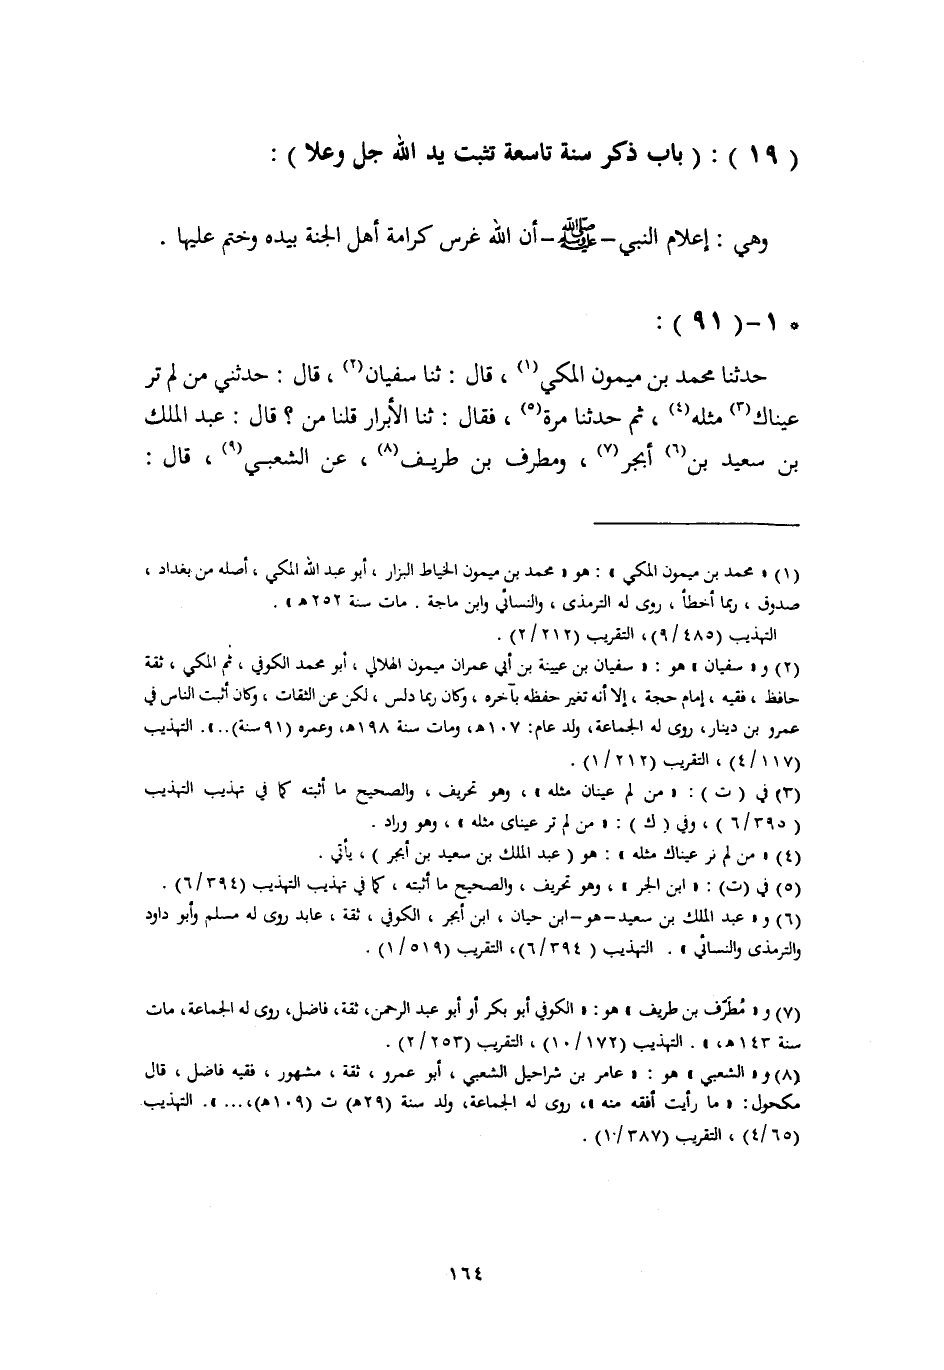 ( ١٩ ) : ( باب ذكر سنة تاسعة تثبت يد الله جل وعلا ) :
وهي : إعلام النبي – ﷺ – أن الله غرس كرامة أهل الجنة بيده وختم عليها .
* ١–( ٩١ ) :
حدثنا محمد بن ميمون المكي(١) ، قال : ثنا سفيان(٢) ، قال : حدثني من لم تر
عيناك(٣) مثله(٤) ، ثم حدثنا مرة(٥) ، فقال : ثنا الأبرار قلنا من ؟ قال : عبد الملك
بن سعيد بن(٦) أبجر(٧) ، ومطرف بن طريـف(٨) ، عن الشعبـي(٩) ، قال :
(١) « محمد بن ميمون المكي » : هو « محمد بن ميمون الخياط البزار ، أبو عبد الله المكي ، أصله من بغداد ،
صدوق ، ربما أخطأ ، روى له الترمذى ، والنسائي وابن ماجة . مات سنة ٢٥٢هـ » .
التهذيب (٩/٤٨٥)، التقريب (٢/٢١٢) .
(٢) و « سفيان » هو : « سفيان بن عيينة بن أبي عمران ميمون الهلالي ، أبو محمد الكوفي ، ثم المكي ، ثقة
حافظ ، فقيه ، إمام حجة ، إلا أنه تغير حفظه بآخره ، وكان ربما دلس ، لكن عن الثقات ، وكان أثبت الناس في
عمرو بن دينار، روى له الجماعة، ولد عام: ١٠٧هـ، ومات سنة ١٩٨هـ، وعمره (٩١سنة)..». التهذيب
(٤/١١٧) ، التقريب (١/٢١٢) .
(٣) في ( ت ) : « من لم عينان مثله » ، وهو تحريف ، والصحيح ما أثبته كما في تهذيب التهذيب
( ٦/٣٩٥ ) ، وفي ( ك ) : « من لم تر عيناى مثله » ، وهو وراد .
(٤) « من لم تر عيناك مثله » : هو ( عبد الملك بن سعيد بن أبجر ) ، يأتي .
(٥) في (ت) : « ابن الجر » ، وهو تحريف ، والصحيح ما أثبته ، كما في تهذيب التهذيب (٦/٣٩٤) .
(٦) و « عبد الملك بن سعيد–هو–ابن حيان ، ابن أبجر ، الكوفي ، ثقة ، عابد روى له مسلم وأبو داود
والترمذى والنسائي » . التهذيب ( ٦/٣٩٤)، التقريب (١/٥١٩) .
(٧) و « مُطَرِّف بن طريف » هو: « الكوفي أبو بكر أو أبو عبد الرحمن، ثقة، فاضل، روى له الجماعة، مات
سنة ١٤٣هـ، » . التهذيب (١٠/١٧٢) ، التقريب (٢/٢٥٣) .
(٨) و « الشعبي » هو : « عامر بن شراحيل الشعبي ، أبو عمرو ، ثقة ، مشهور ، فقيه فاضل ، قال
مكحول: « ما رأيت أفقه منه »، روى له الجماعة، ولد سنة (٢٩هـ) ت (١٠٩هـ)،...». التهذيب
(٤/٦٥) ، التقريب (١٠/٣٨٧) .
١٦٤